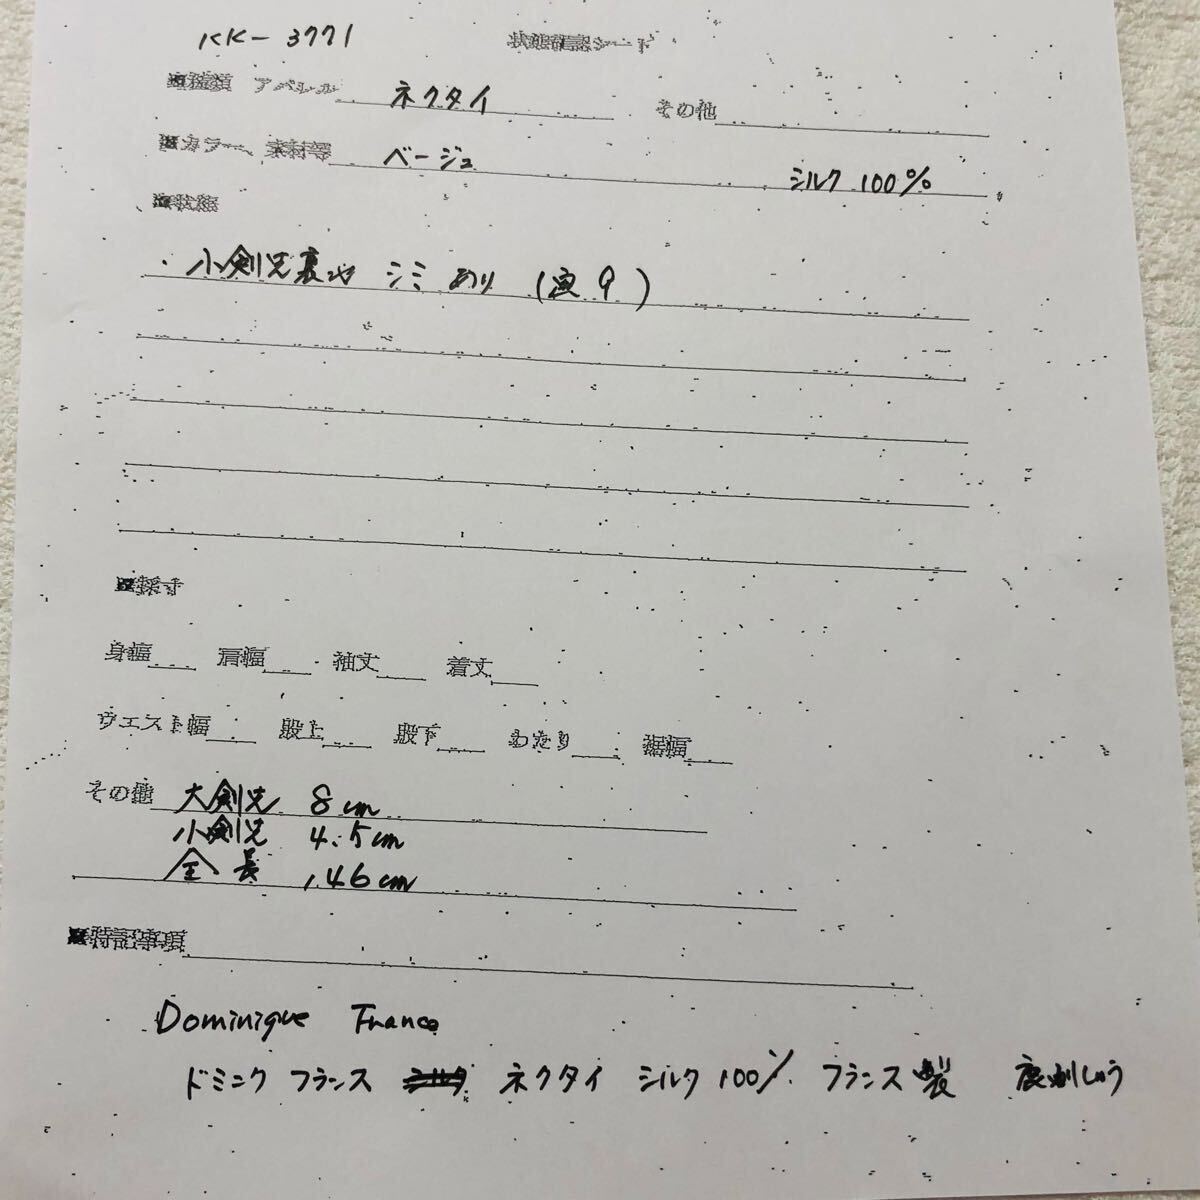 KK-3771 状態確認シート
■種類 アパレル ネクタイ その他
■カラー、素材等 ベージュ シルク 100%
■状態
・小剣先裏に シミ あり (画 9)
■採寸
身幅 肩幅 袖丈 着丈
ウエスト幅 股上 股下 わたり 裾幅
その他 大剣先 8cm
小剣先 4.5cm
全長 146cm
■特記事項
Dominique France
ドミニク フランス ネクタイ シルク 100% フランス製